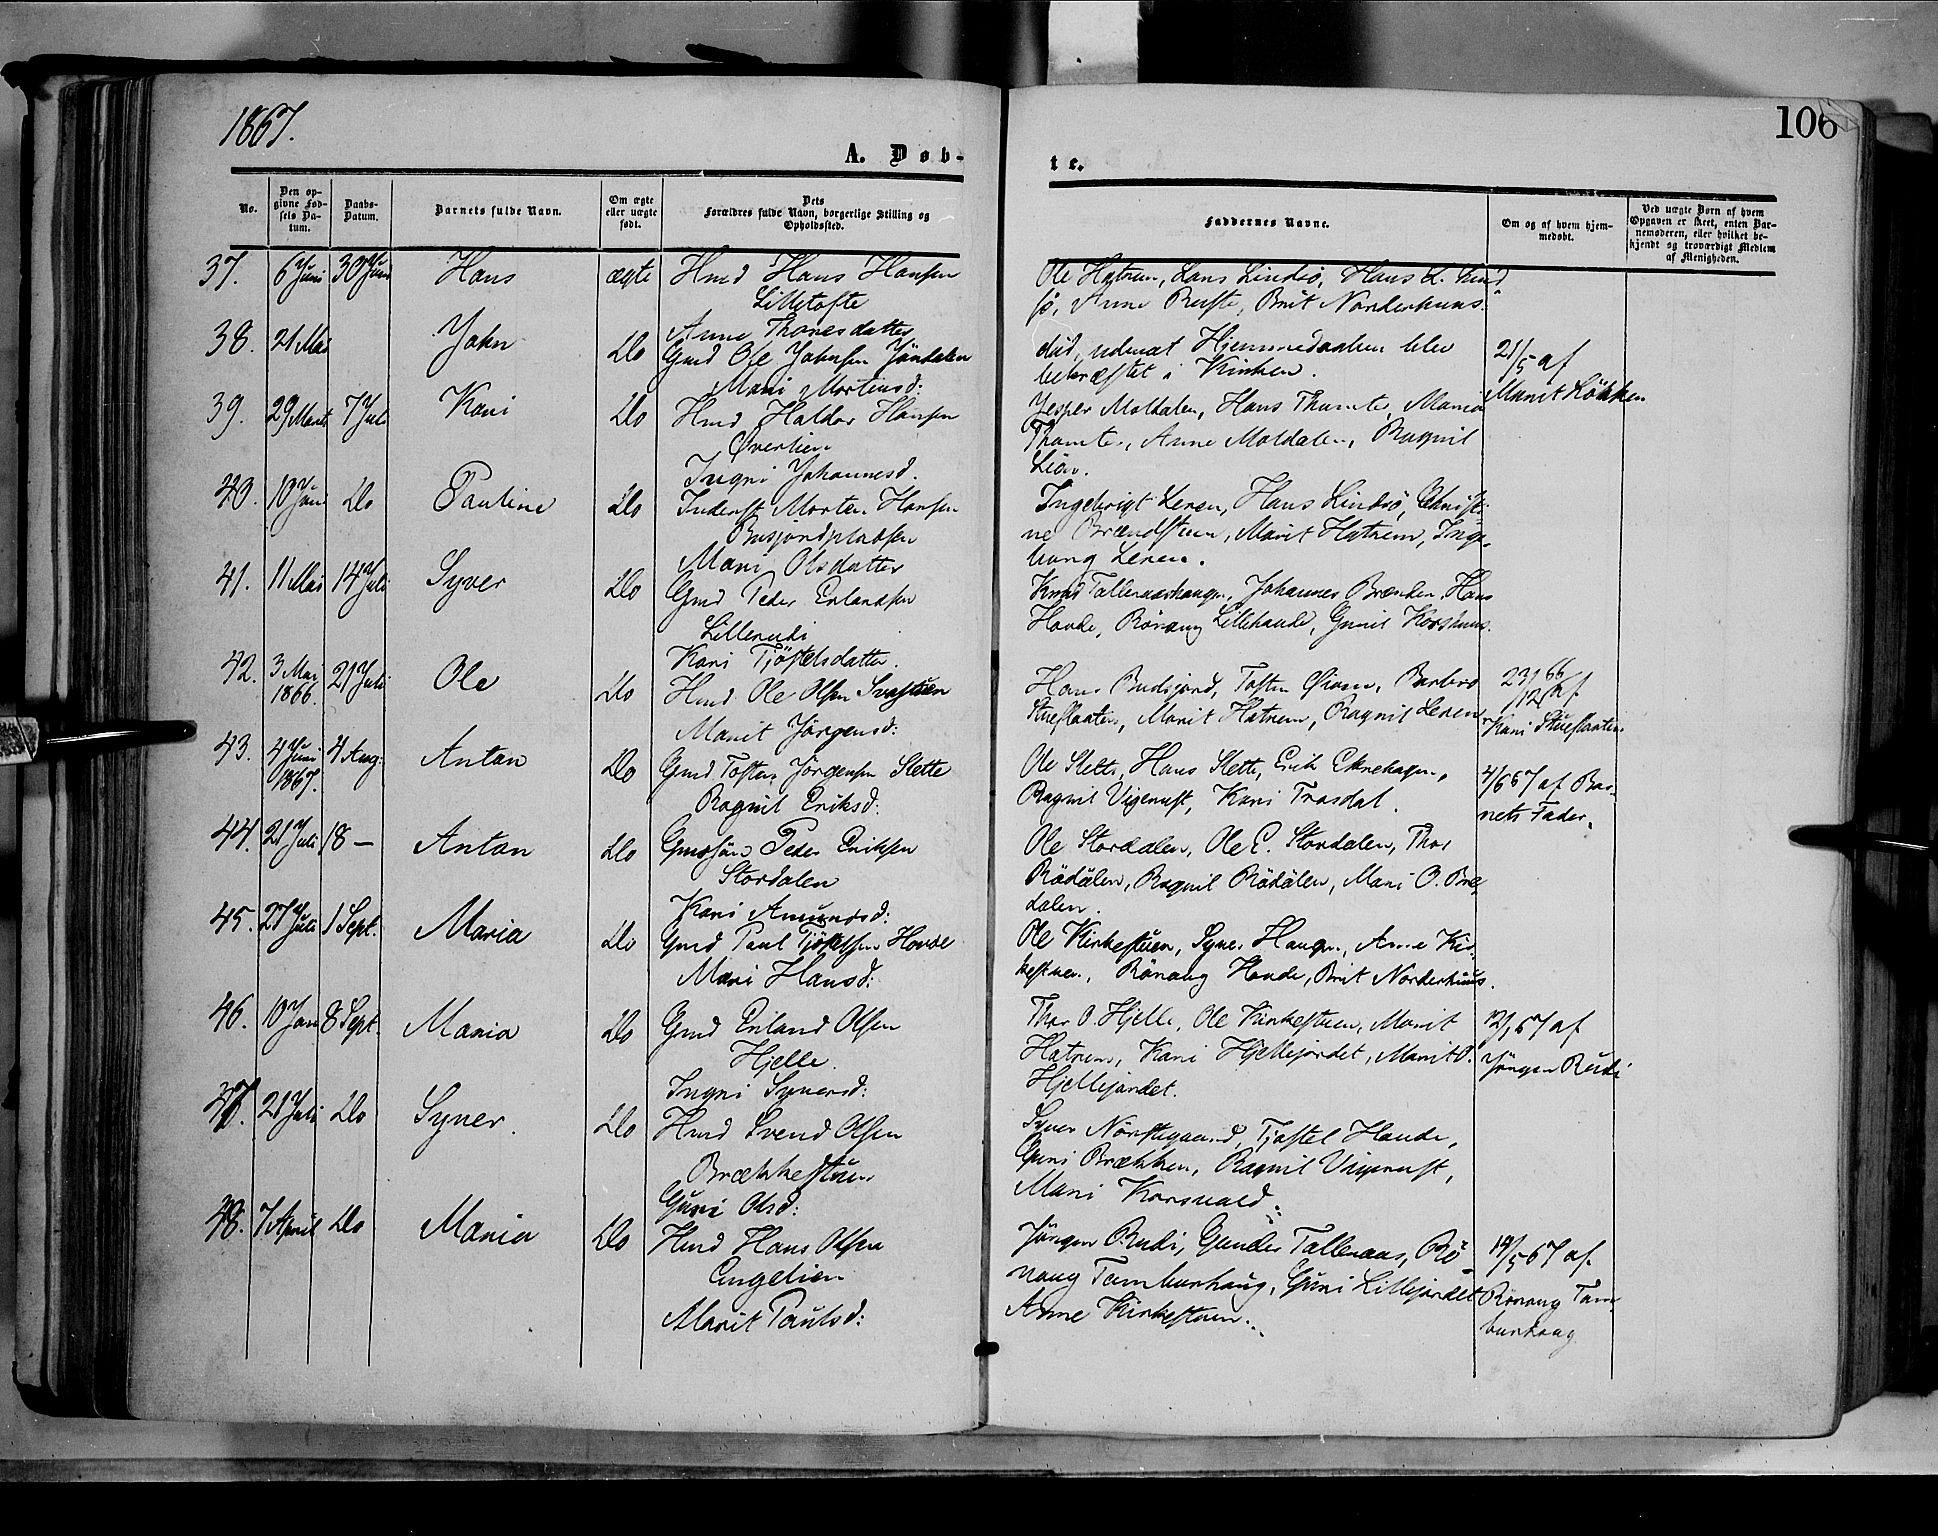 1867.
106
A. Døb-
te.
No.
Den op-
givne Fød-
sels Da-
tum.
Daabs-
Datum.
Barnets fulde Navn.
Om ægte
eller uægte
født.
Dets
Forældres fulde Navn, borgerlige Stilling og
Opholdssted.
Faddernes Navne.
Om og af hvem hjem-
medøbt.
Ved uægte Børn af hvem
Opgaven er skeet, enten Bar-
nemoderen, eller hvilket be-
kjendt og troværdigt Medlem
af Menigheden.
37. 6 Juni 30 Juni Hans ægte Hmd Hans Hansen
Lilletofte
Anne Thoresdatter
Ole Hatrem, Hans Lindsö, Hans L. Lind
sö, Anne Ruste, Brit Norderhuus.
38. 21 Mai John Do Gmd Ole Johnsen Jöndalen
Mari Mortensd:
död, uden at Hjemmedaaben blev
bekræftet i Kirken.
21/5 af
Marit Lökken
39. 29 Marts 7 Juli Kari Do Hmd Haldor Hansen
Øverlien
Ingri Johannesd.
Jesper Moldalen, Hans Thomte, Maria
Thomte, Anne Moldalen, Ragnil
Lien.
40. 10 Do Pauline Do Inderst Morten Hansen
Busjordpladsen
Mari Olsdatter
Ingebrigt Leren, Hans Lindsö, Christi-
ne Brændstuen, Marit Hatrem, Inge-
borg Leren.
41. 11 Mai 14 Juli Syver Do Gmd Peder Erlandsen
Lillerudi
Kari Tjöstelsdatter.
Knud Talleraashaugen, Johannes Brænden, Hans
Hovde, Rönaug Lillehovde, Guril Korshuus.
42. 3 Mai
1866. 21 Juli Ole Do Hmd Ole Olsen Svastuen
Marit Jörgensd:
Hans Budsjord, Tosten Öien, Barbro
Stueflaaten, Marit Hatrem, Ragnil Leren
23/12 66 af
Kari Stueflaaten
43. 4 Juni
1867. 4 Aug. Anton Do Gmd Tosten Jörgensen Slette
Ragnil Eriksd:
Ole Slette, Hans Slette, Erik Eknehagen,
Ragnil Vigerust, Kari Trosdal.
4/6 67 af Bar-
nets Fader.
44. 21 Juli 18 — Anton Do Gmdsön Peder Eriksen
Stordalen
Kari Amundsd:
Ole Stordalen, Ole E. Stordalen, Thor
Rödölen, Ragnil Rödölen, Mari O. Bre-
dalen.
45. 27 Juli 1 Sept. Maria Do Gmd Paul Tjöstelsen Hovde
Mari Hansd:
Ole Kirkestuen, Syver Haugen, Anne Kir-
kestuen, Rönaug Hovde, Brit Norderhuus.
46. 10 Jan 8 Sept. Maria Do Gmd Erland Olsen
Hjelle.
Ingri Syversd:
Thor O. Hjelle, Ole Kirkestuen, Marit
Hatrem, Kari Hjellejordet, Marit O.
Hjellejordet.
12/1 67 af
Jörgen Rudi
47. 21 Juli Do Syver. Do Hmd Svend Olsen
Brækkestuen
Guri Olsd:
Syver Nörstegaard, Tjostel Hovde,
Guri Brækken, Ragnil Vigerust,
Mari Korsvold.
48. 7 April Do Maria Do Hmd Hans Olsen
Engelien
Marit Paulsd:
Jörgen Rudi, Gunder Talleraas, Rö-
naug Tamburhaug, Guri Lillejordet
Anne Kirkestuen.
19/5 67 af
Rönaug Tam-
burhaug